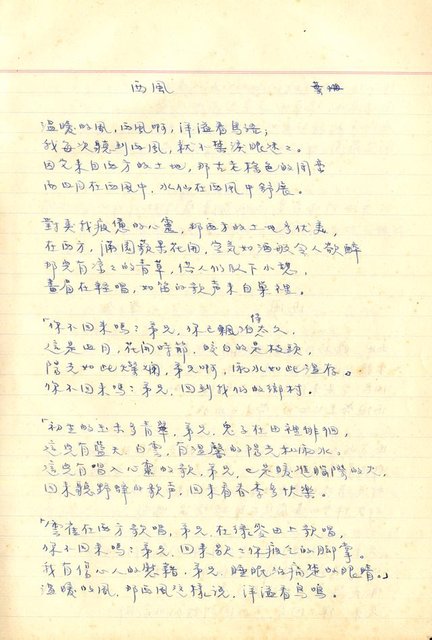 西風
温暖的風,西風啊,洋溢着鳥語;
我每次聽到西風,就不禁淚眼迷迷。
因它來自西方的土地,那古老棕色的岡巒
而四月在西風中,水仙在西風中舒展。
對委我疲憊的心靈,那西方的土地多優美,
在西方,滿園蘋果花開,空氣如酒般令人欲醉
那兒有漥漥的青草,供人們臥下小憩,
畫眉在輕唱,如笛的歌声來自巢裡。
「你不回來嗎?弟兄,你已飄泊得太久,
這是四月,花開時節,皎白的是枝頭,
陽光如此燦爛,弟兄啊,雨水如此溫存。
你不回來嗎?弟兄,回到我们的鄉村。
「初生的玉米多青翠,弟兄,兔子在田裡徘徊,
這兒有藍天白雲,有溫馨的陽光和雨水,
這兒有唱入心靈的歌,弟兄,也是暖進腦際的火,
回來聽野蜂的歌声,回來看春季多快樂。
「雲雀在西方歌唱,弟兄,在綠麥田上歌唱,
你不回來嗎?弟兄,回來歇歇你疲乏的脚掌。
我有傷心人的慰藉,弟兄,睡眠治痛楚的眼睛。」
温暖的風,那西風這樣說,洋溢着鳥鳴。